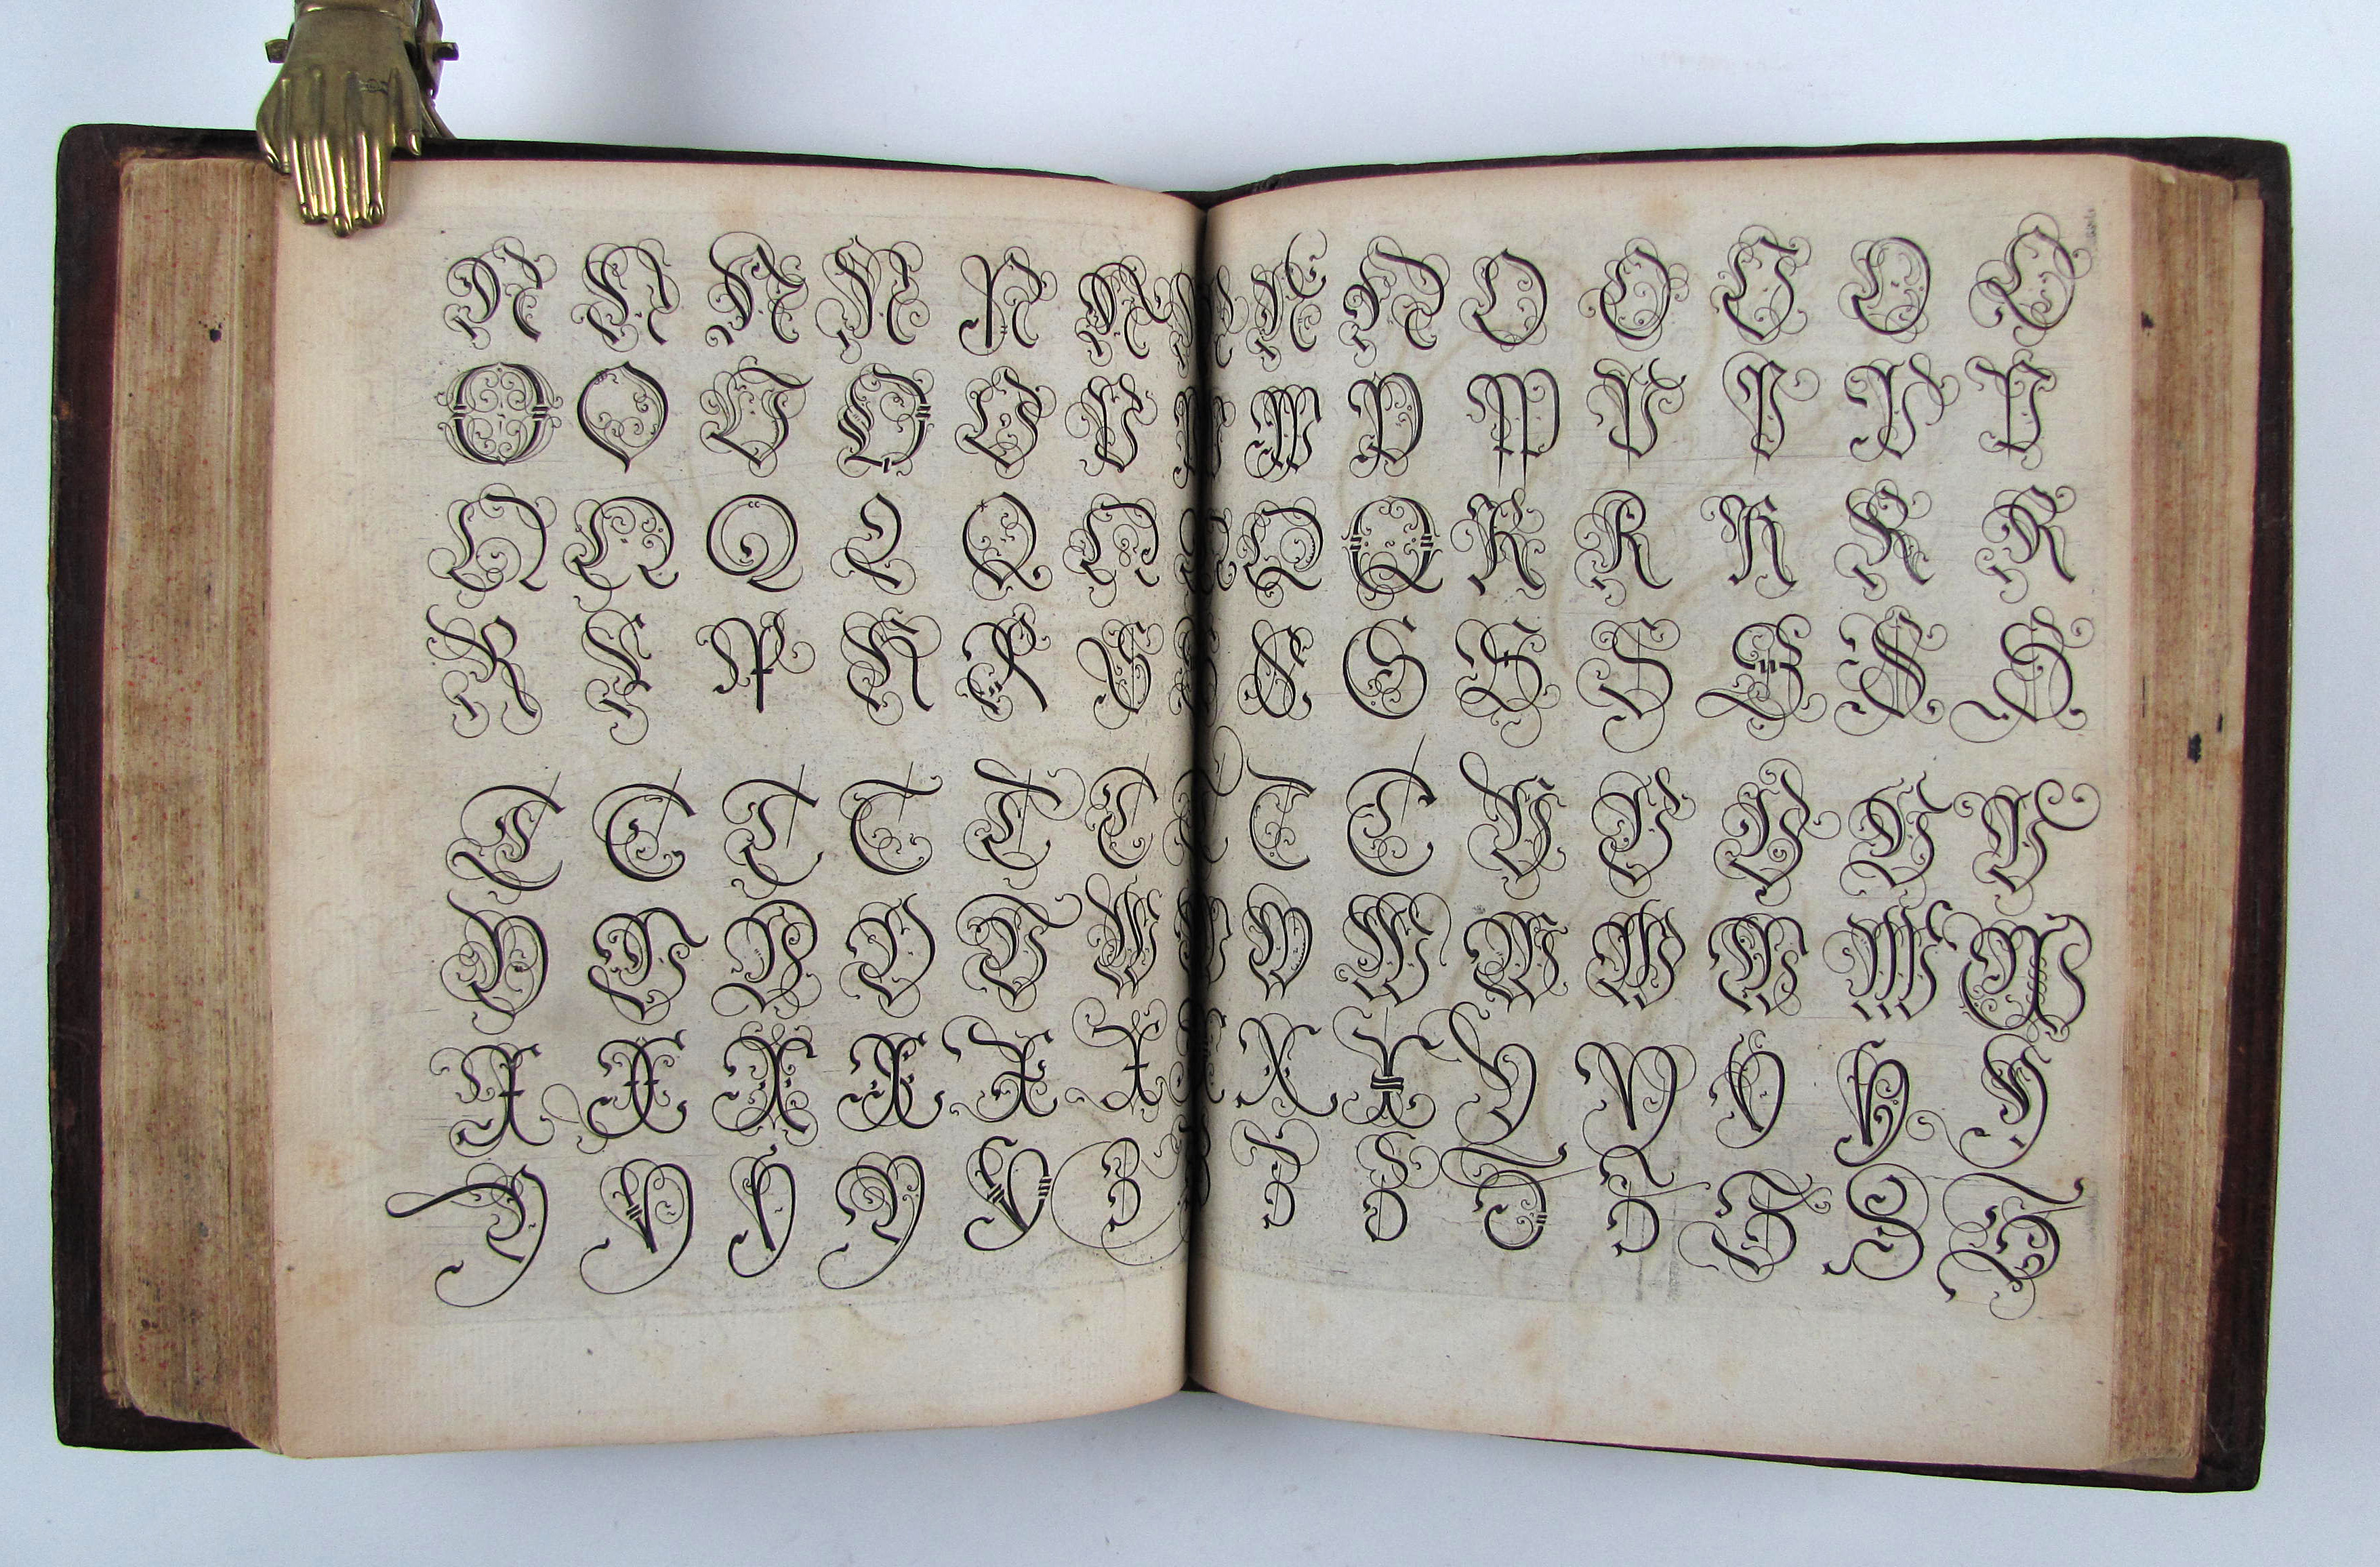 N N N N N N N N N O O O O O
O O O O O P P P P P P P P P
Q Q Q Q Q Q Q Q Q R R R R R
R R R R R S S S S S S S S S
T T T T T T T T T V V V V V
V V V V V W W W W W W W W W
X X X X X X X X Y Y Y Y Y Y
Y Y Y Y Y Z Z Z Z Z Z Z Z Z